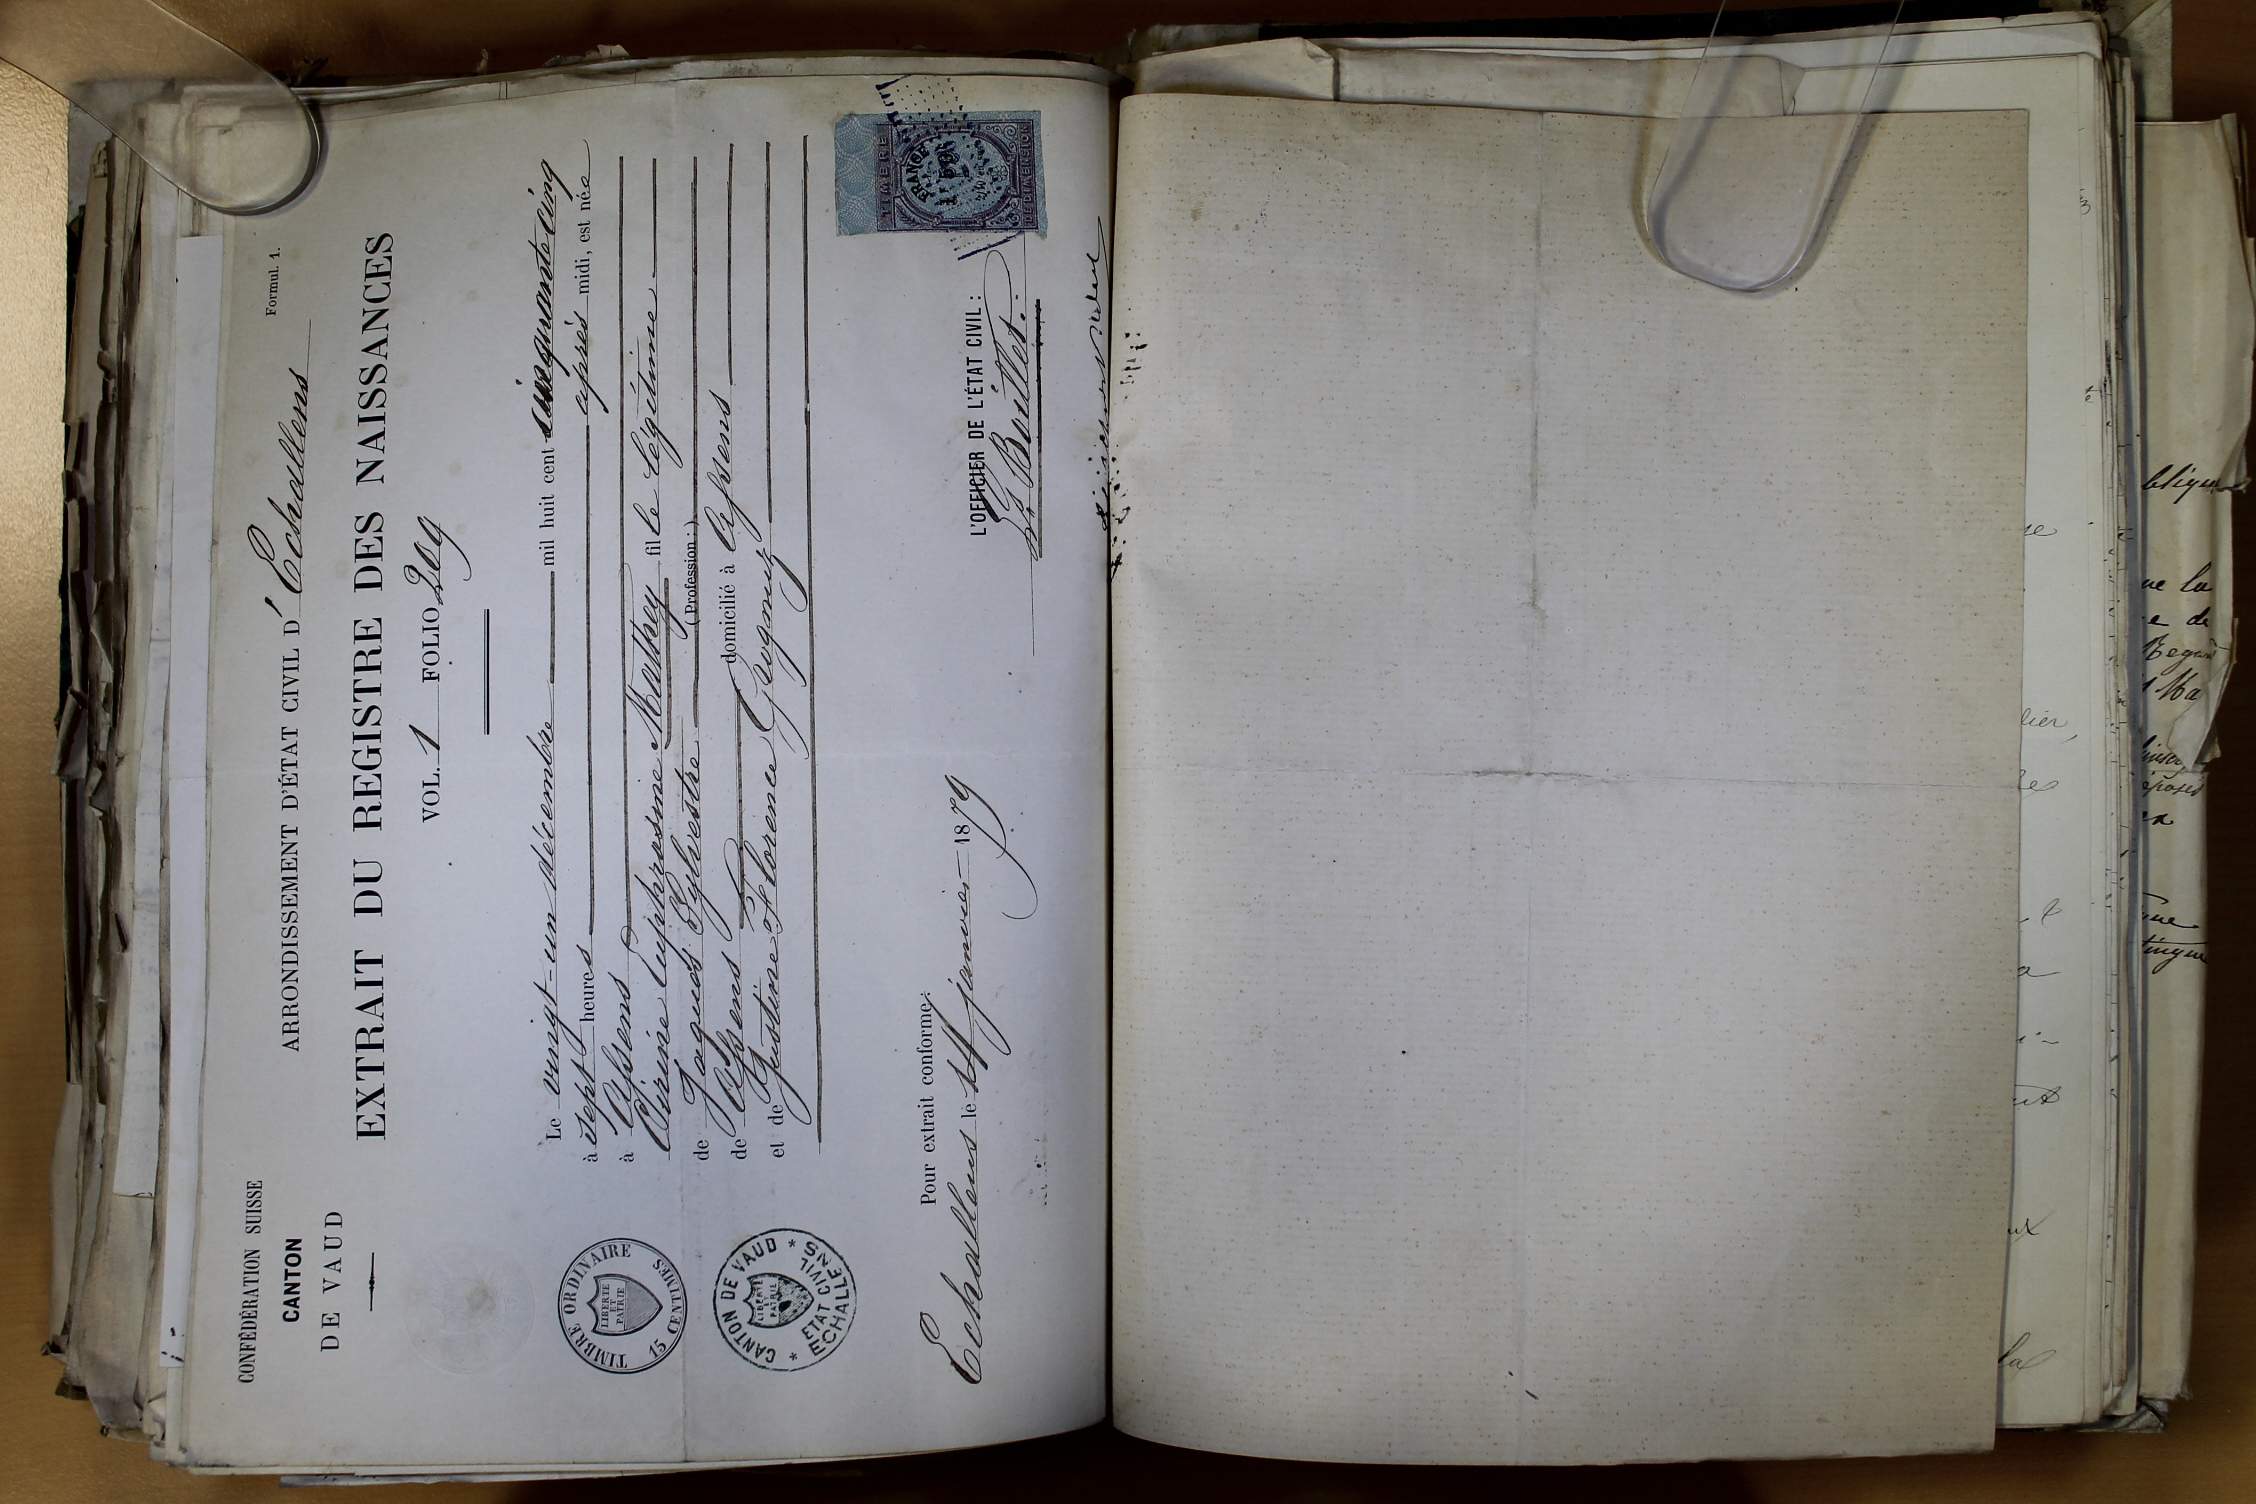 CONFÉDÉRATION SUISSE
CANTON
DE VAUD
Formul. 1.
ARRONDISSEMENT D'ÉTAT CIVIL D'Echallens
EXTRAIT DU REGISTRE DES NAISSANCES
VOL. 1 FOLIO 209
Le vingt-un décembre mil huit cent cinquante cinq
à sept heures après midi, est née
à Assens
Périne Euphrosine Mathey fille légitime
de Jaques Sylvestre (Profession :)
de Assens domicilié à Assens
et de Justine Florence Gavgnuz
TIMBRE ORDINAIRE
LIBERTÉ ET PATRIE
15 CENTIMES
* CANTON DE VAUD *
LIBERTÉ ET PATRIE
ETAT CIVIL
ECHALLENS
Pour extrait conforme:
Echallens le 14 janvier 1879
L'OFFICIER DE L'ÉTAT CIVIL:
TIMBRE
FRANCE
DE DIMENSION
bliqu
ue la
e de